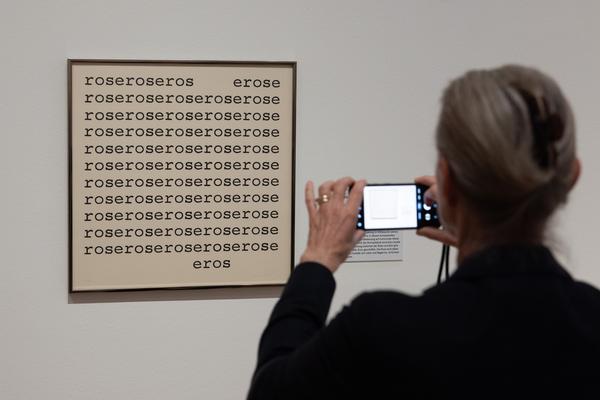 roseroseros    erose
roseroseroseroserose
roseroseroseroserose
roseroseroseroserose
roseroseroseroserose
roseroseroseroserose
roseroseroseroserose
roseroseroseroserose
roseroseroseroserose
roseroseroseroserose
roseroseroseroserose
           eros